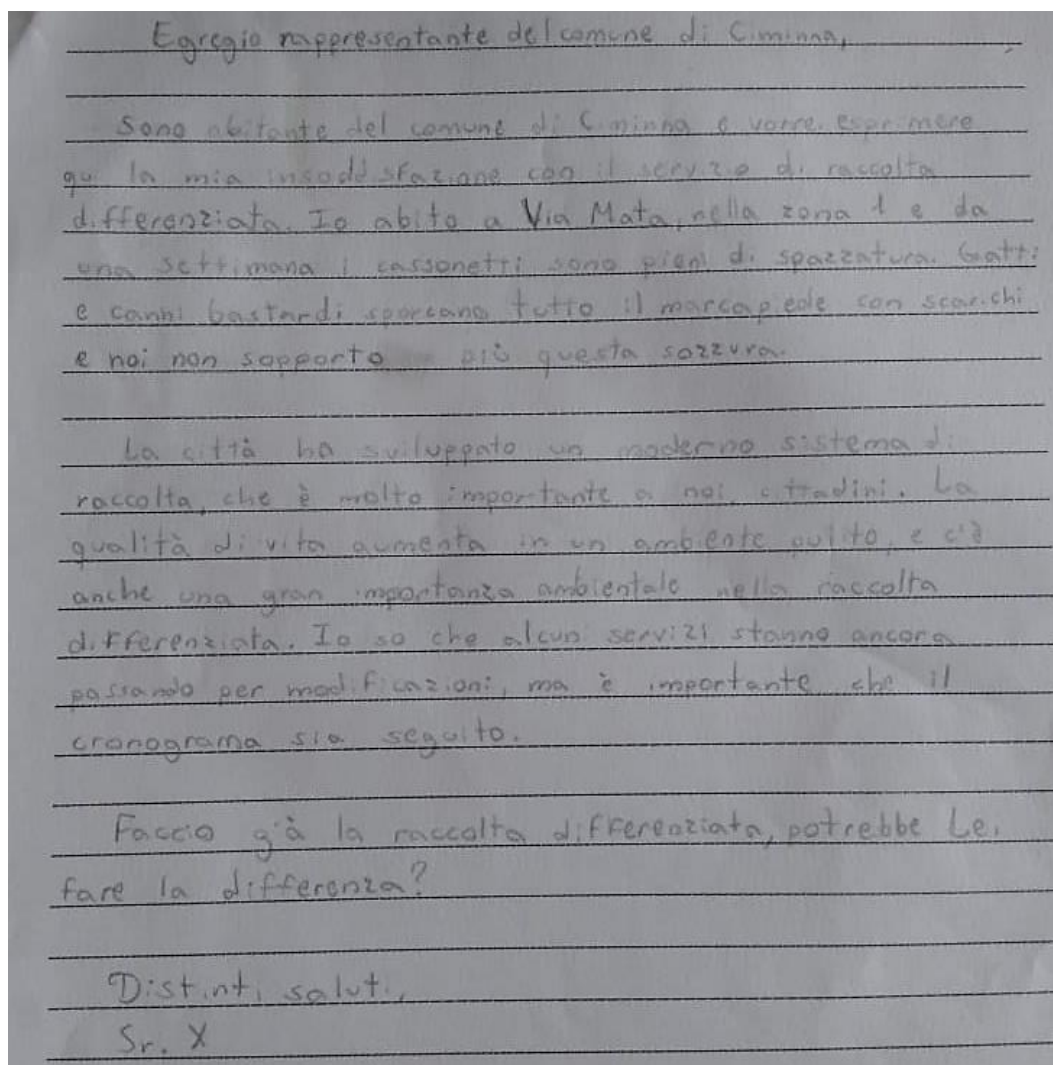 Egregio rappresentante del comune di Ciminna,
Sono abitante del comune di Ciminna e vorrei esprimere
qui la mia insoddisfazione con il servizio di raccolta
differenziata. Io abito a Via Mata, nella zona 1 e da
una settimana i cassonetti sono pieni di spazzatura. Gatti
e canni bastardi sporcano tutto il marcapiede con scarichi
e noi non sopporto più questa sozzura.
La città ha sviluppato un moderno sistema di
raccolta, che è molto importante a noi, cittadini. La
qualità di vita aumenta in un ambiente pulito, e c'è
anche una gran importanza ambientale nella raccolta
differenziata. Io so che alcuni servizi stanno ancora
passando per modificazioni, ma è importante che il
cronograma sia seguito.
Faccio già la raccolta differenziata, potrebbe Lei
fare la differenza?
Distinti saluti,
Sr. X